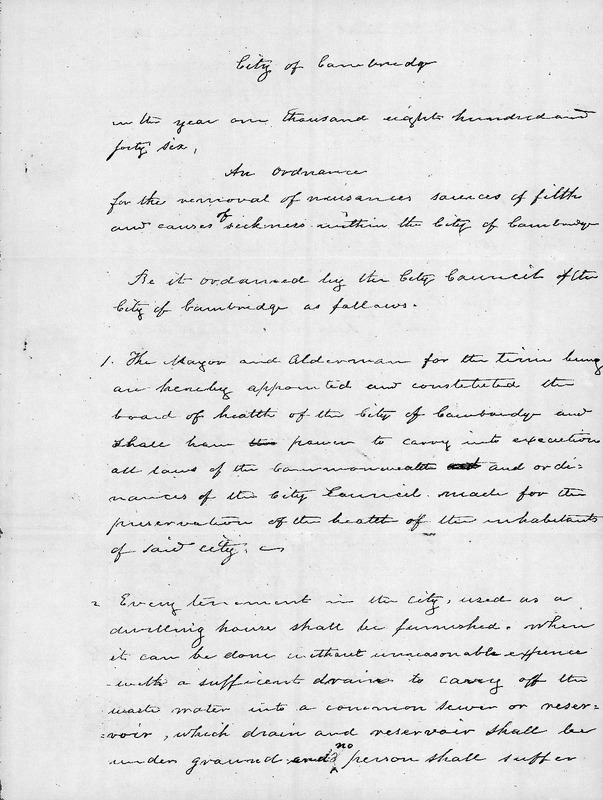 City of Cambridge
in the year one thousand eight hundred and
forty six,
An Ordnance
for the removal of nuisances sources of filth
and causes of sickness within the City of Cambridge
Be it ordained by the City Council of the
City of Cambridge as follows.
1. The Mayor and Alderman for the time being
are hereby appointed and constituted the
board of health of the City of Cambridge and
shall have the power to carry into execution
all laws of the Commonwealth and ordi-
nances of the City Council. made for the
preservation of the health of the inhabitants
of said city.
2 Every tenement in the city, used as a
dwelling house shall be furnished. When
it can be done without unreasonable expence
with a sufficent drain to carry off the
waste water into a common sewer or reser-
=voir, which drain and reservoir shall be
under ground and no person shall suffer